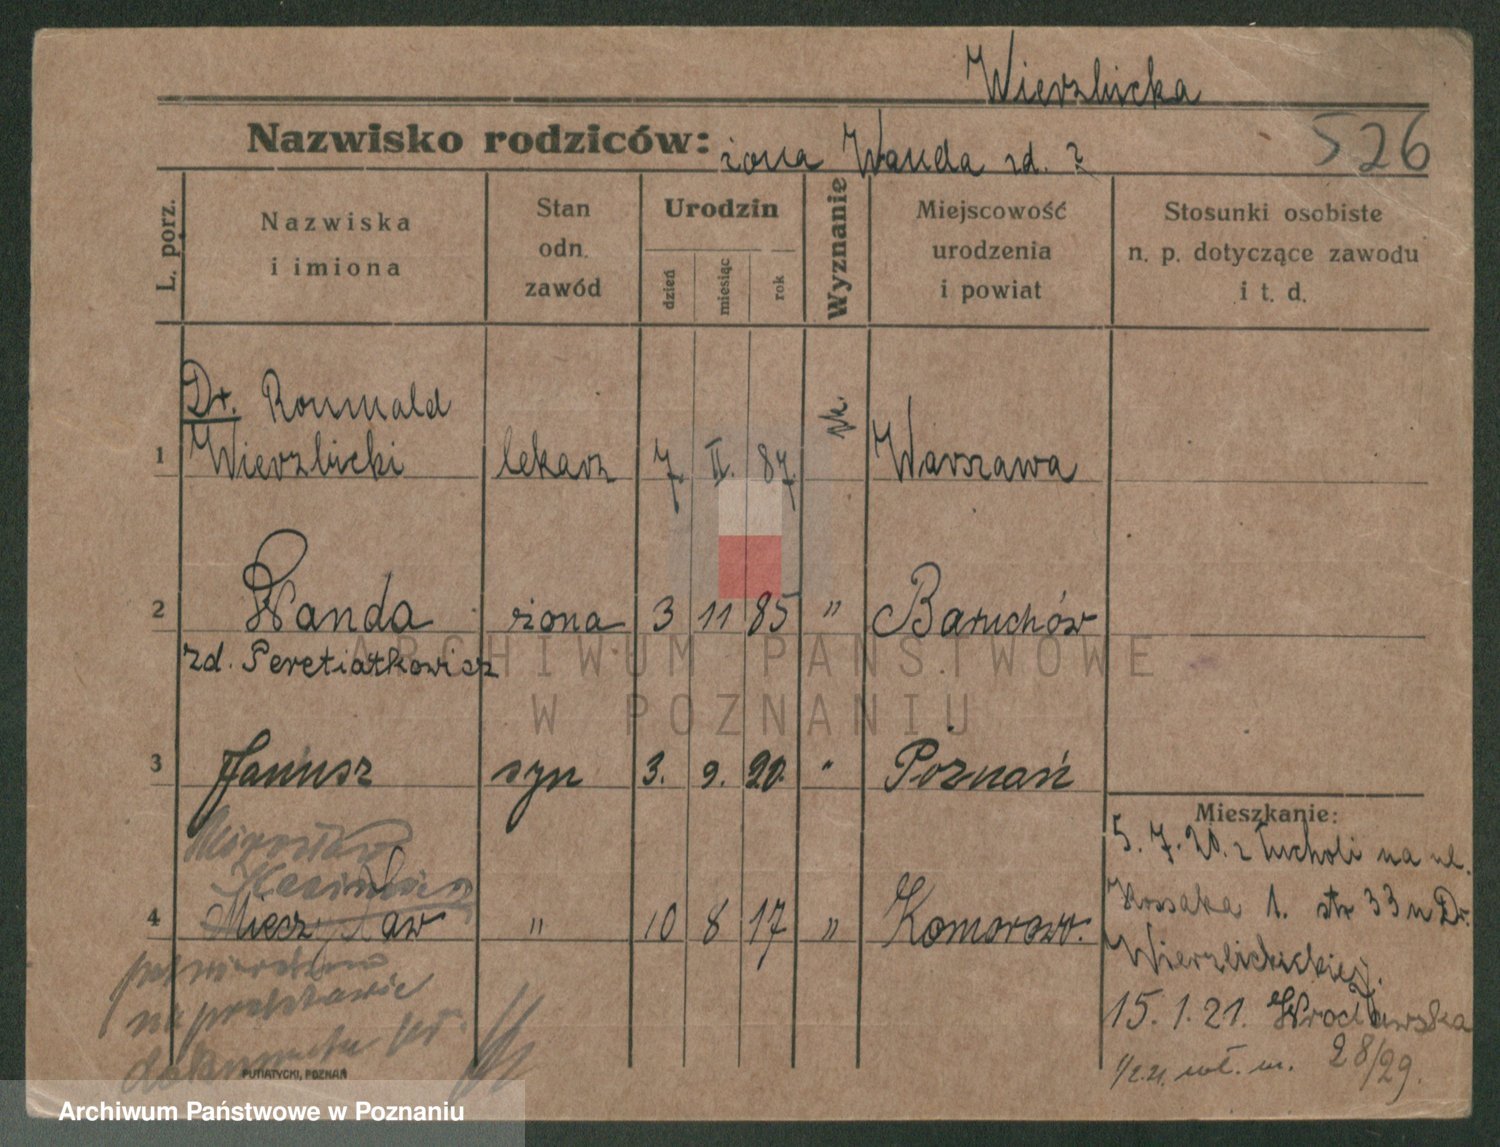 Wierzbicka
526
Nazwisko rodziców: żona Wanda zd. ?
L. porz.
Nazwiska
i imiona
Stan
odn.
zawód
Urodzin
dzień
miesiąc
rok
Wyznanie
Miejscowość
urodzenia
i powiat
Stosunki osobiste
n. p. dotyczące zawodu
i t. d.
Dr. Romuald
1 Wierzbicki lekarz 7 II. 87 rk. Warszawa
2 Wanda żona 3 11 85 " Baruchów
zd. Peretiatkowicz
3 Janusz syn 3. 9. 20. " Poznań
Mirosław
Kazimierz
4 Mieczysław " 10 8 17 "
na podstawie
dokumentu
Mieszkanie:
5. 7. 20. z Tucholi na ul.
Kossaka 1. str 33 u Dr.
15. 1. 21. Wrocławska
28/29.
PUTIATYCKI, POZNAŃ
ARCHIWUM PAŃSTWOWE
W POZNANIU
Archiwum Państwowe w Poznaniu